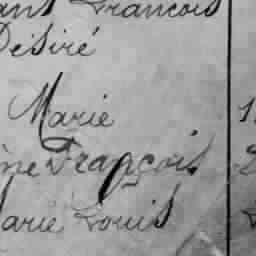 François
Désiré
Marie
François
Marie Louis